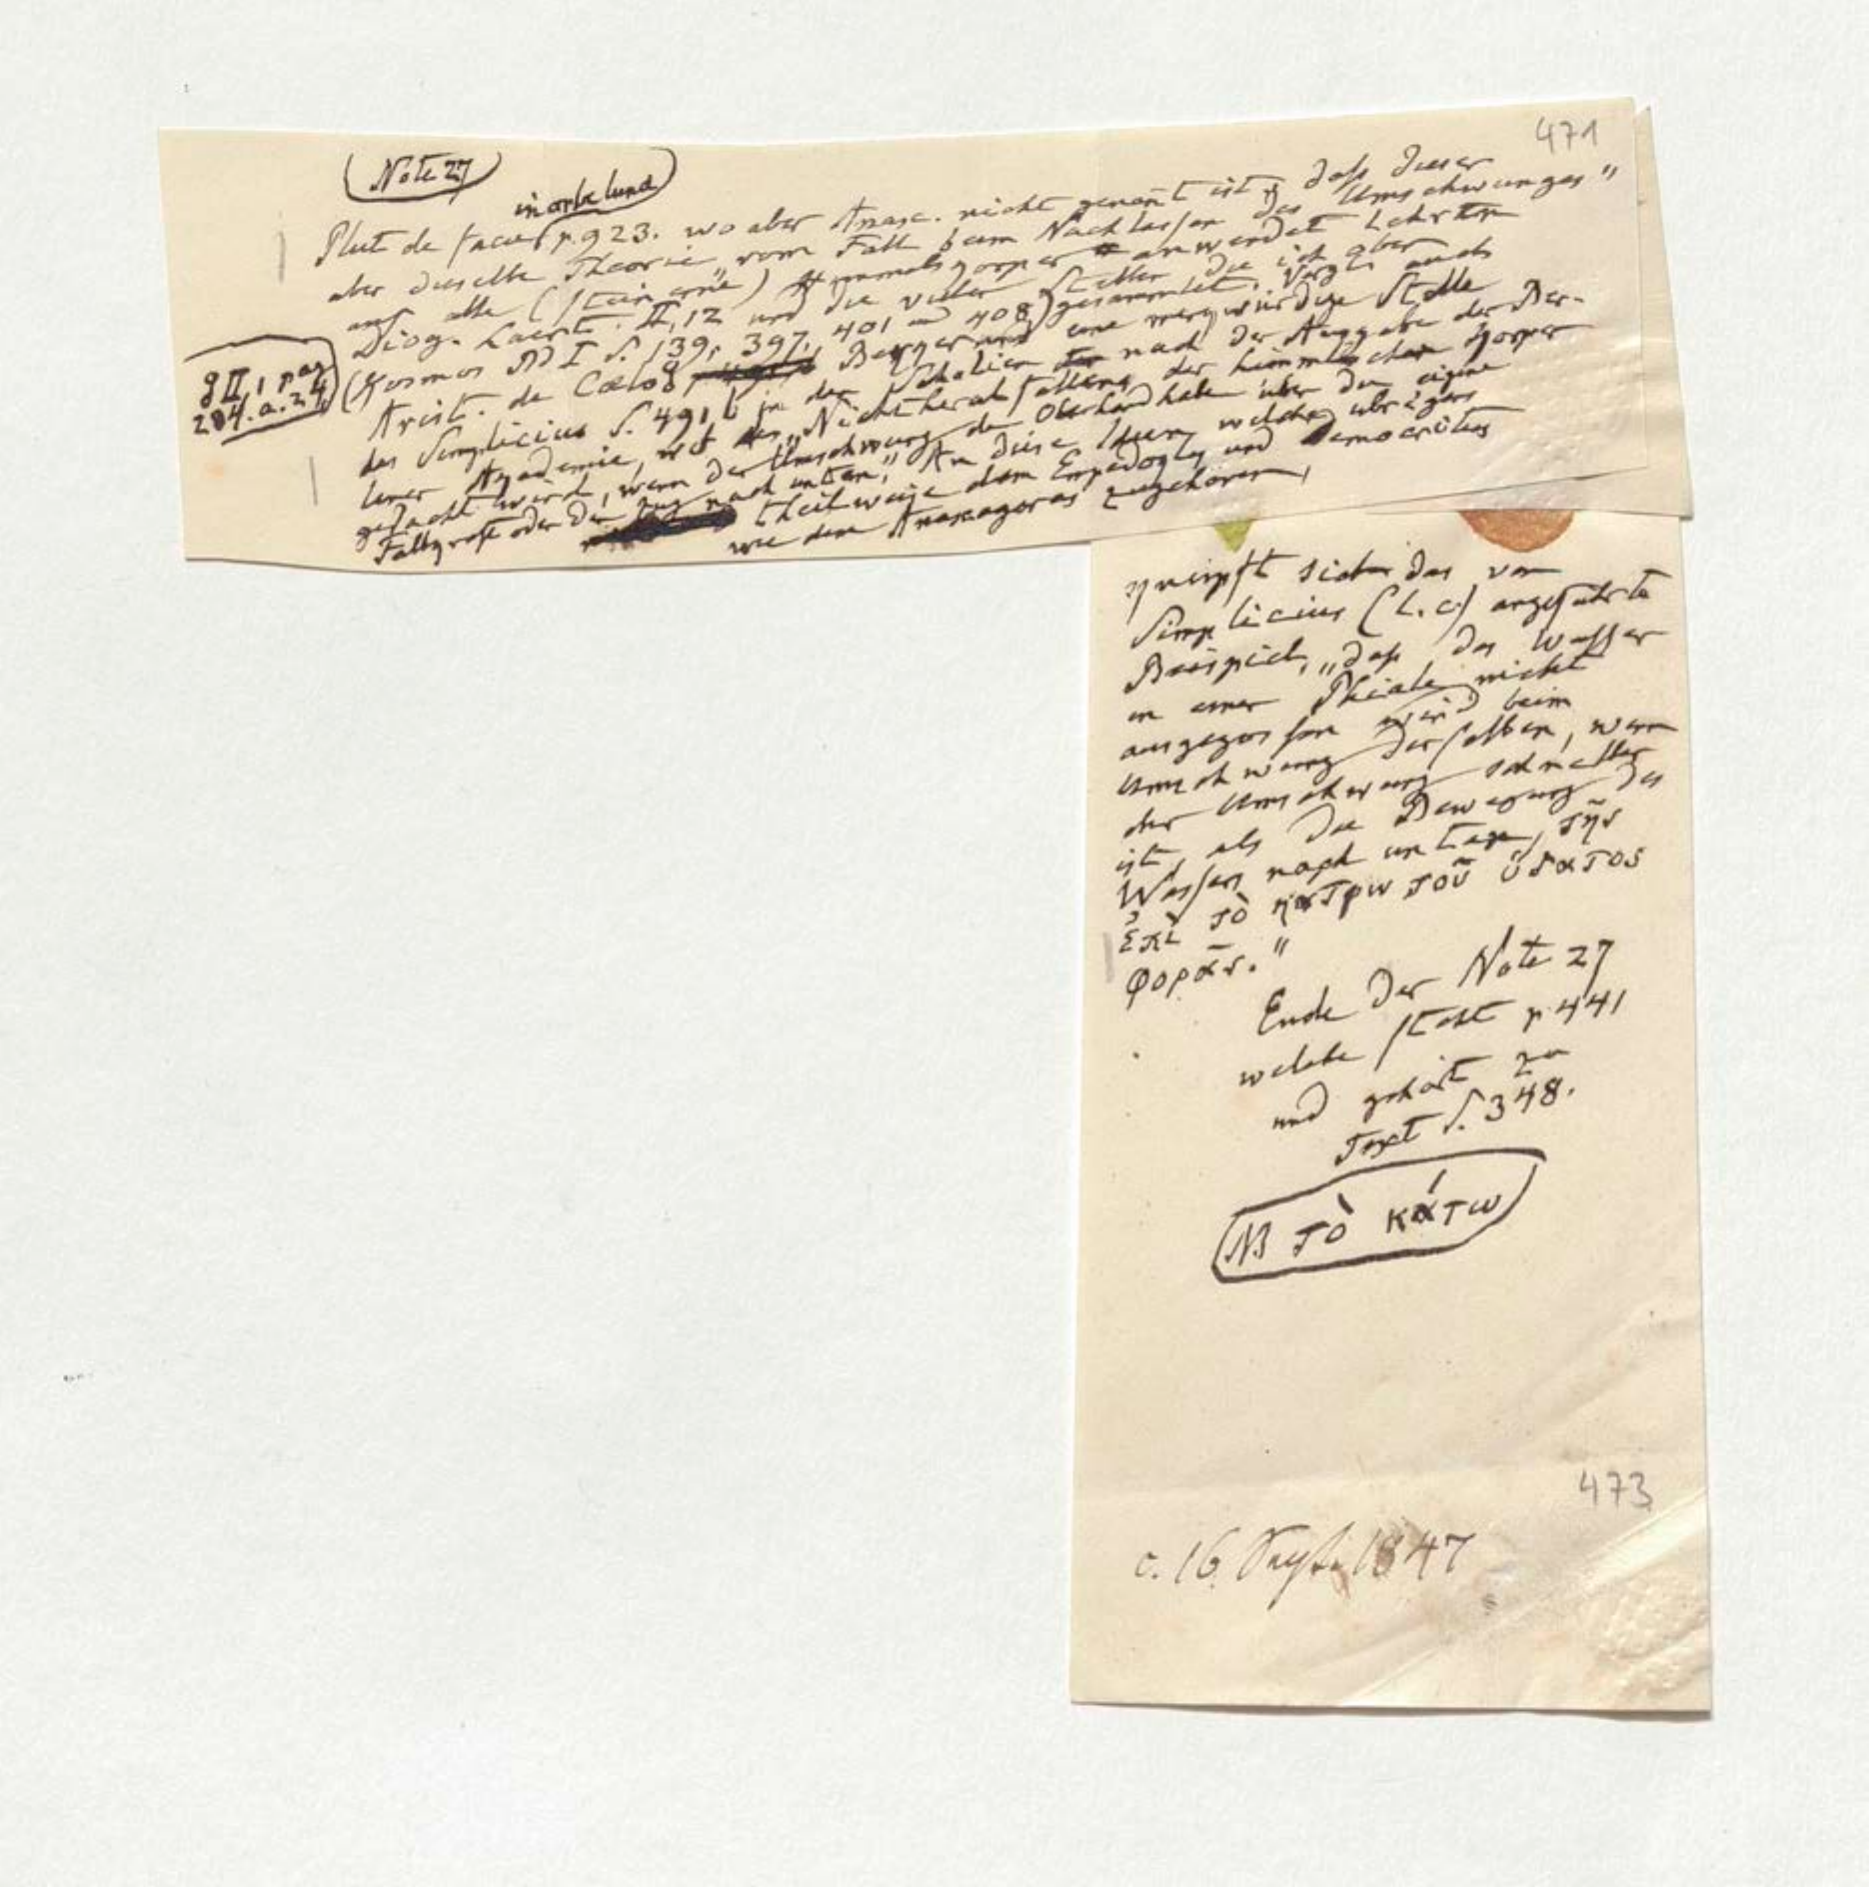 471
Note 27
in orbe lunae
Plut. de facie p. 923. wo aber Anax. nicht genant ist, daß dieser
aber dieselbe Theorie „vom Fall beim Nachlassen des Umschwunges“
auf alle (steinerne) Himmelskörper anwendet lehrten
Diog. Laert. II, 12 und die vielen Stellen die ich oben
(Kosmos Bd I S. 139, 397, 401 und 408) gesammelt. Vergl. auch
Arist. de Coelo
g II, 1 pag
284. a. 24
eine merkwürdige Stelle
des Simplicius S. 491 b in der Scholien nach der Ausgabe der Ber-
liner Akademie, wo des „Nichtherabfallens der himmlischen Körper
gedacht wird, wenn der Umschwung die Oberhand habe über die eigene
Fallkraft oder den Zug nach unten.“ An diese Ideen, welche übrigens
theilweise dem Empedokles und Democritus
wie dem Anaxagoras zugehören,
knüpft sich das von
Simplicius (l. c.) angeführte
Beispiel, „daß das Wasser
in einer Phiale nicht
ausgegossen wird beim
Umschwung derselben, wenn
der Umschwung schneller
ist als die Bewegung des
Wassers nach unten, τῆς
ἐπὶ τὸ κατω τοῦ ὕδατος
φορᾶς.“
Ende der Note 27
welche steht p. 441
und gehört zu
Text S. 348.
NB τὸ κάτω
473
c. 16 1847